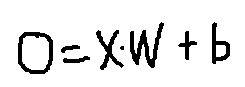 O=X·W+b